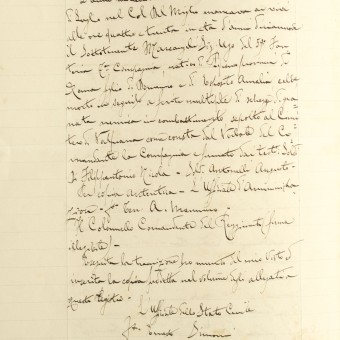 di Luglio nel Col del Miglio mancava ai vivi
alle ore quattro e trenta in età d'anni
il Sottotenente Sig. Ugo del 59° Fan
teria Compagnia, nativo di provincia di
Roma figlio di Domenico e di Amelia celibe
morto in seguito a ferite multiple di schegge di gra
nata nemica in combattimento sepolto al Cimi
tero di Valpiana come consta dal Verbale del Co
mandante la Compagnia e firmato dai testi. Sold.
Filippantonio Nicola - Sold. Antonelo Augusto -
Per copia autentica - L'Ufficiale d'Amministra
zione - f° Ten. A.
Il Colonnello Comandante del Reggimento firma
illeggibile) -
Eseguita la trascrizione ho munito del mio Visto ed
inserito la copia suddetta nel volume degli allegati a
questo registro -
L'Ufficiale dello Stato Civile
f° Ernesto Simoni